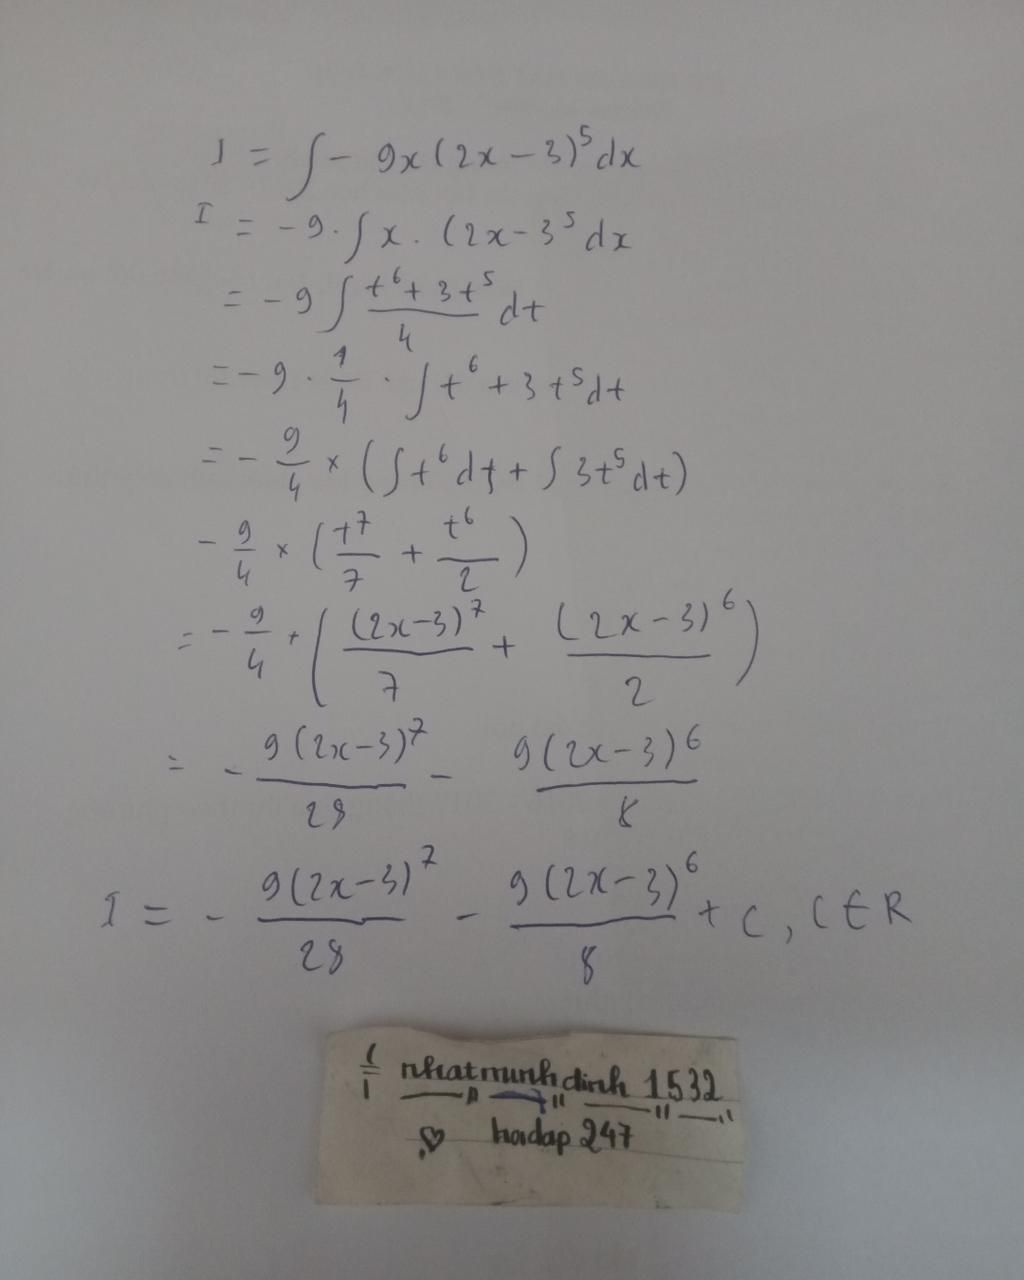 I = ∫ - 9x (2x - 3)⁵ dx
I = - 9 . ∫ x . (2x - 3⁵ dx
= - 9 ∫ (t⁶ + 3t⁵)/4 dt
= - 9 . 1/4 . ∫ t⁶ + 3t⁵ dt
= - 9/4 × (∫ t⁶ dt + ∫ 3t⁵ dt)
- 9/4 × (t⁷/7 + t⁶/2)
= - 9/4 + ((2x-3)⁷/7 + (2x-3)⁶/2)
= - 9(2x-3)⁷/28 - 9(2x-3)⁶/8
I = - 9(2x-3)⁷/28 - 9(2x-3)⁶/8 + C, C ∈ R
nhatminhdinh 1532
hoidap 247